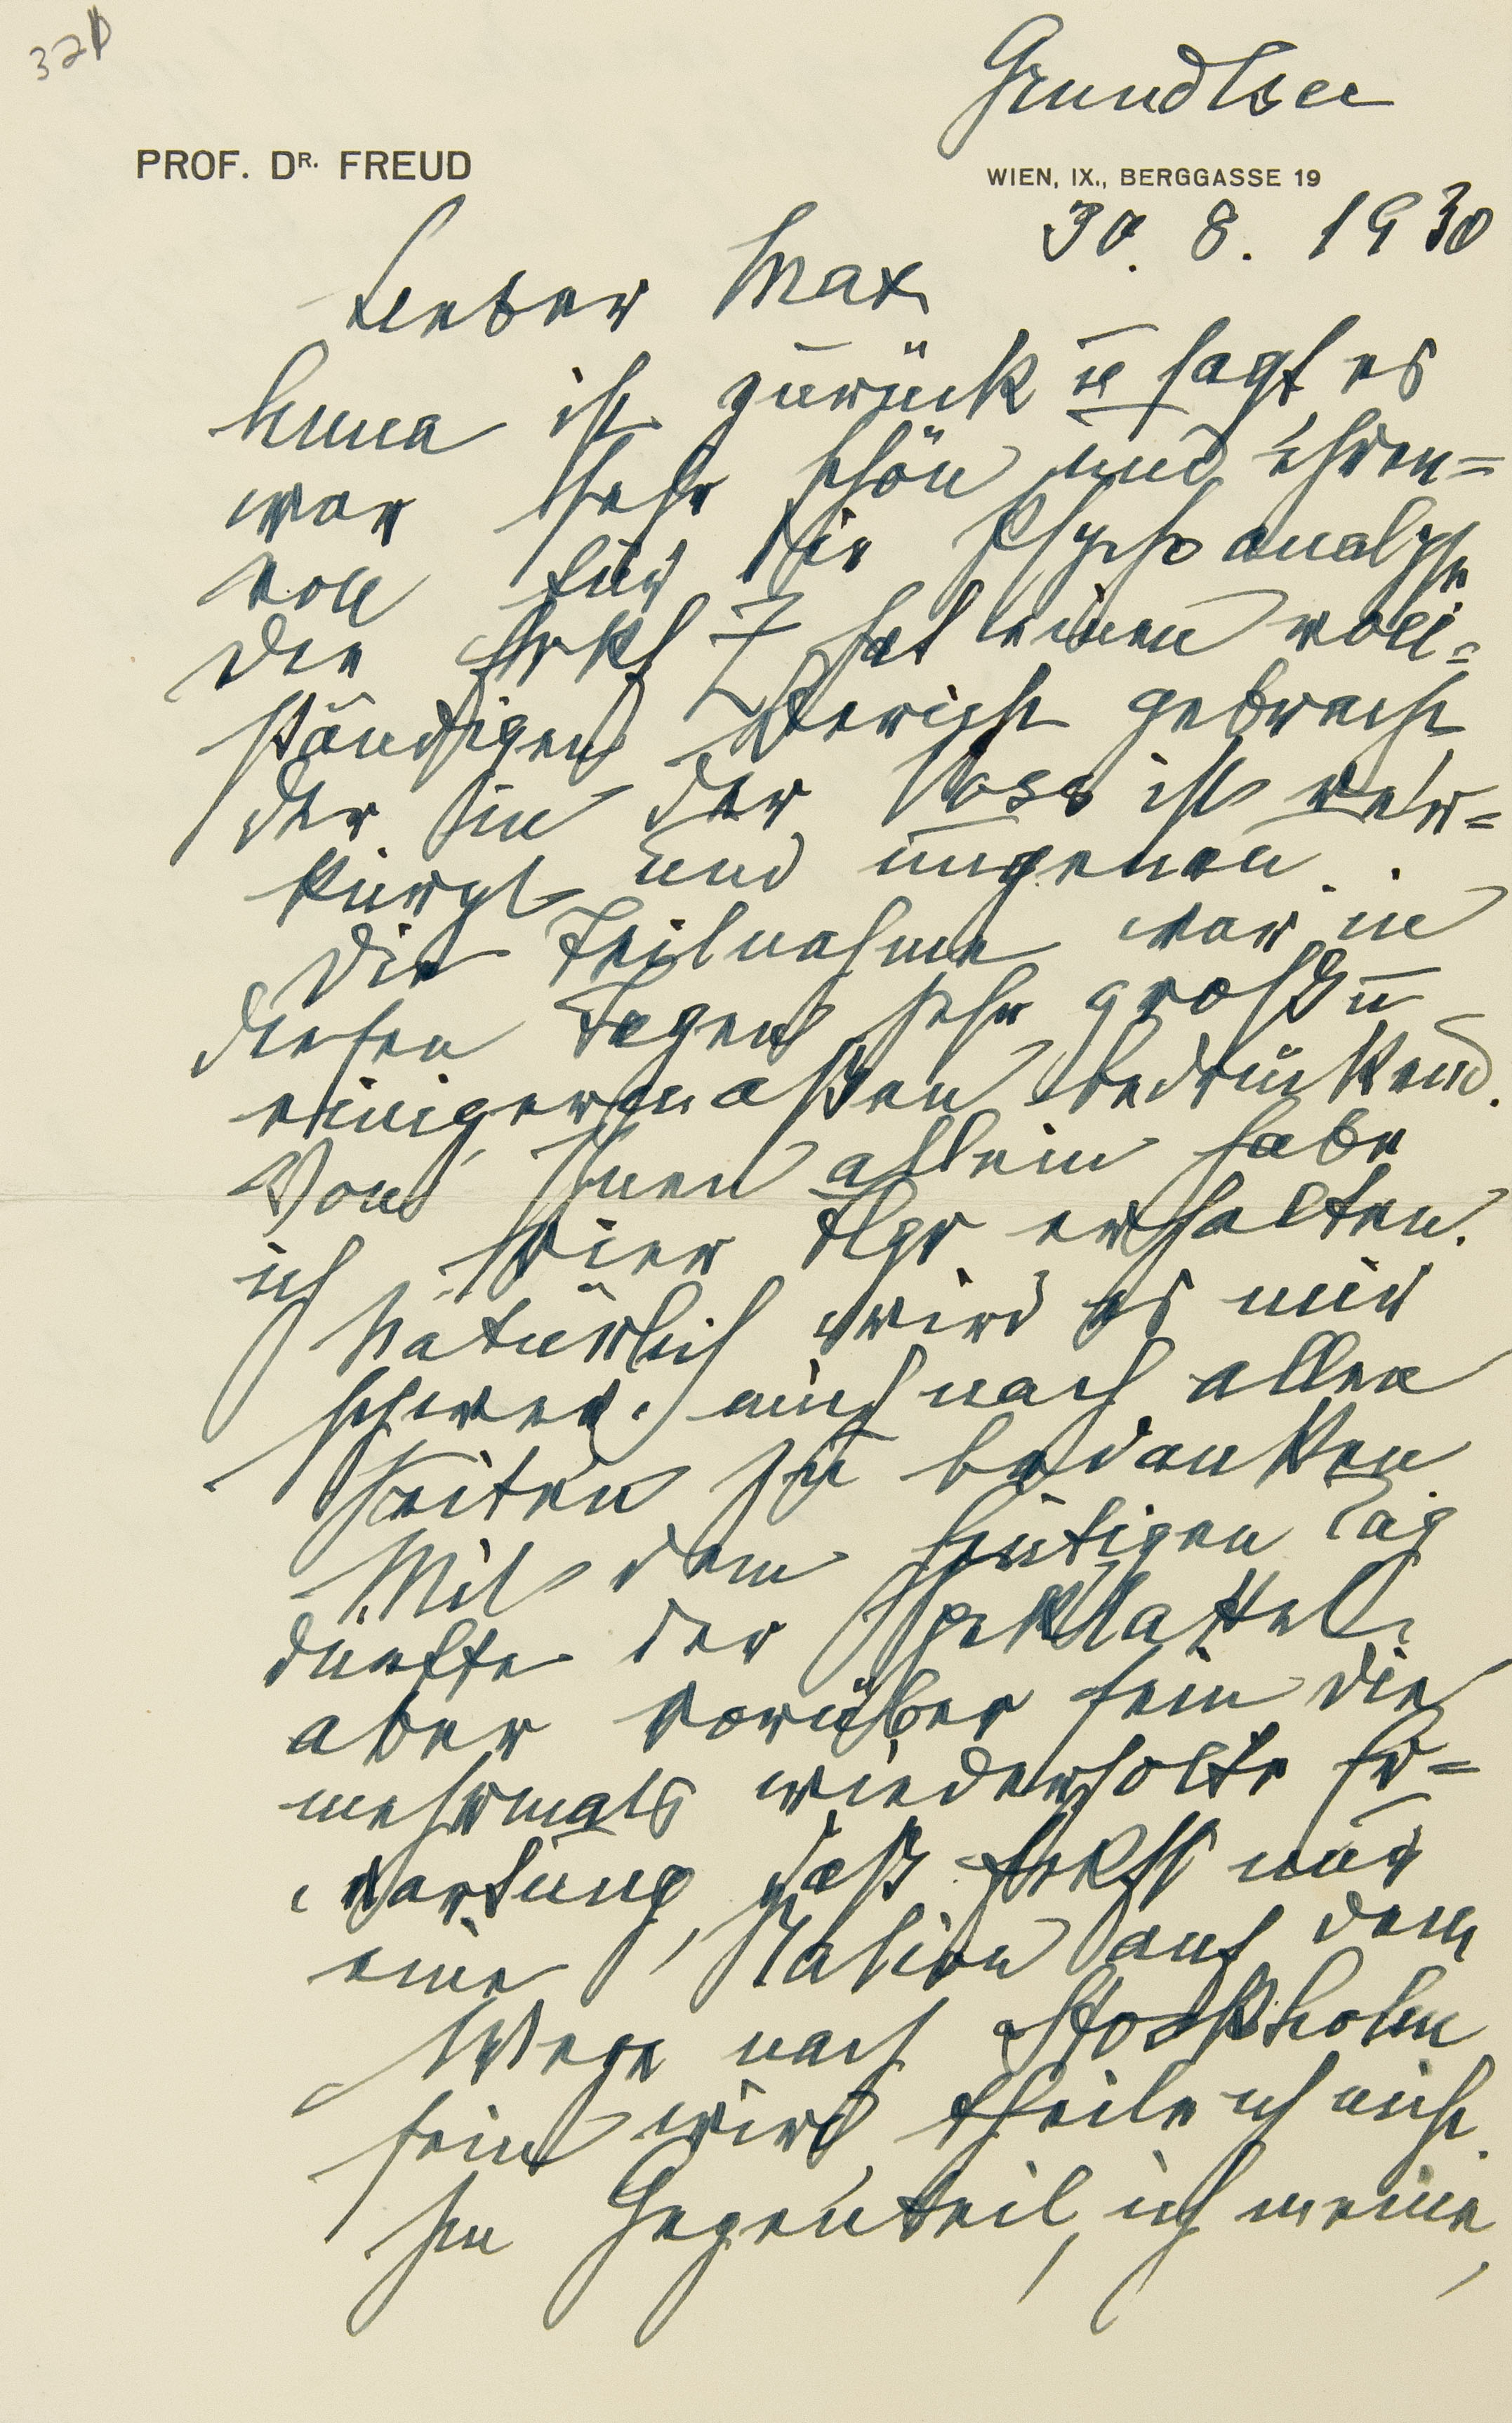 32
Grundlsee
PROF. DR. FREUD
WIEN, IX., BERGGASSE 19
30. 8. 1930
Lieber Max
Anna ist zurück u sagt es
war sehr schön und ehren=
voll für die Psychoanalyse
Die Frkf Z hat einen voll=
ständigen Bericht gebracht
der in der Voss ist ver=
kürzt und ungenau.
Die Teilnahme war in
diesen Tagen sehr groß u
einigermaßen bedrückend.
Von Ihnen allein habe
ich vier Tlgr erhalten.
Natürlich wird es mir
schwer, mich nach allen
Seiten zu bedanken
Mit dem heutigen Tag
dürfte der Spektakel
aber vorüber sein die
mehrmals wiederholte Er=
wartung, daß Frkft nur
eine Station auf dem
Wege nach Stockholm
sein wird, theile ich nicht.
Im Gegenteil, ich meine,